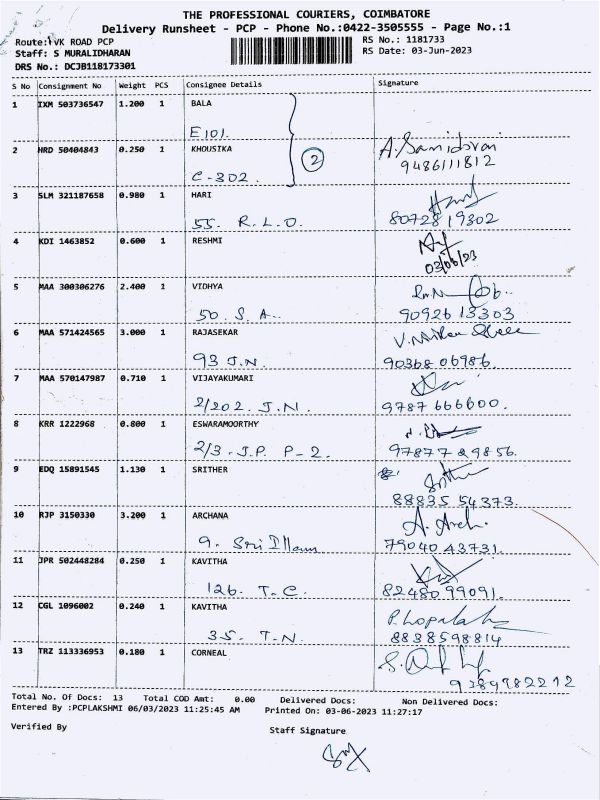 THE PROFESSIONAL COURIERS, COIMBATORE
Delivery Runsheet - PCP - Phone No.:0422-3505555 - Page No.:1
Route: VK ROAD PCP RS No.: 1181733
Staff: S MURALIDHARAN RS Date: 03-Jun-2023
DRS No.: DCJB118173301
S No Consignment No Weight PCS Consignee Details Signature
1 IXM 503736547 1.200 1 BALA
E101.
2 HRD 50404843 0.250 1 KHOUSIKA A. Samidorai
C-302. 2 9486111812
3 SLM 321187658 0.980 1 HARI
55. R.L.O. 80728 19302
4 KDI 1463852 0.600 1 RESHMI
03/06/23
5 MAA 300306276 2.400 1 VIDHYA
50. S. A. 90926 13303
6 MAA 571424565 3.000 1 RAJASEKAR
93 J.N. 90368 06986.
7 MAA 570147987 0.710 1 VIJAYAKUMARI
2/202. J.N. 9787 666600.
8 KRR 1222968 0.800 1 ESWARAMOORTHY
2/3. J.P. P-2. 97877 29856.
9 EDQ 15891545 1.130 1 SRITHER Srither
88835 54373.
10 RJP 3150330 3.200 1 ARCHANA A. Arch.
9. Sri Illam 79040 43731.
11 JPR 502448284 0.250 1 KAVITHA
126. T.C. 82480 99091.
12 CGL 1096002 0.240 1 KAVITHA
35. T.N. 8838598814
13 TRZ 113336953 0.180 1 CORNEAL
9289982212
Total No. Of Docs: 13 Total COD Amt: 0.00 Delivered Docs: Non Delivered Docs:
Entered By :PCPLAKSHMI 06/03/2023 11:25:45 AM Printed On: 03-06-2023 11:27:17
Verified By Staff Signature